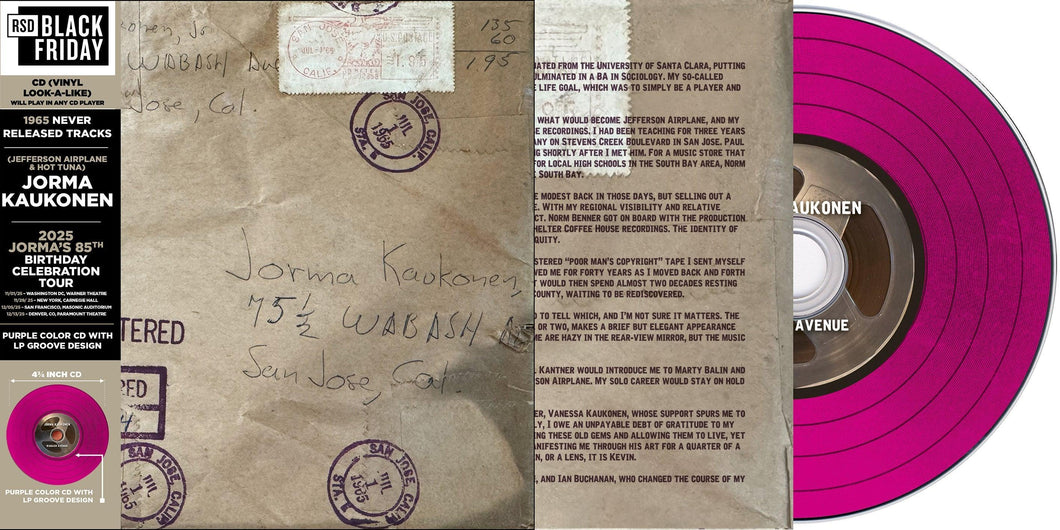 RSD BLACK
FRIDAY
CD (VINYL
LOOK-A-LIKE)
WILL PLAY IN ANY CD PLAYER
1965 NEVER
RELEASED TRACKS
(JEFFERSON AIRPLANE
& HOT TUNA)
JORMA
KAUKONEN
2025
JORMA'S 85TH
BIRTHDAY
CELEBRATION
TOUR
11/01/25 - WASHINGTON DC, WARNER THEATRE
11/29/25 - NEW YORK, CARNEGIE HALL
12/05/25 - SAN FRANCISCO, MASONIC AUDITORIUM
12/13/25 - DENVER, CO, PARAMOUNT THEATRE
PURPLE COLOR CD WITH
LP GROOVE DESIGN
4¾ INCH CD
JORMA KAUKONEN
WABASH AVENUE
PURPLE COLOR CD WITH
LP GROOVE DESIGN
onen, Jr
WABASH Ave
Jose, Cal.
SAN JOSE
CALIF.
U.S. POSTAGE
135
60
1.95
SAN JOSE, CALIF.
JUL
1
1965
STA.
Jorma Kaukonen,
75 1/2 WABASH
San Jose, Cal.
TERED
SAN JOSE, CALIF.
JUL
1
1965
STA.
JOSE, CALIF.
JUL
1
1965
UATED FROM THE UNIVERSITY OF SANTA CLARA, PUTTING
ULMINATED IN A BA IN SOCIOLOGY. MY SO-CALLED
E LIFE GOAL, WHICH WAS TO SIMPLY BE A PLAYER AND
WHAT WOULD BECOME JEFFERSON AIRPLANE, AND MY
SE RECORDINGS. I HAD BEEN TEACHING FOR THREE YEARS
ANY ON STEVENS CREEK BOULEVARD IN SAN JOSE. PAUL
NG SHORTLY AFTER I MET HIM. FOR A MUSIC STORE THAT
FOR LOCAL HIGH SCHOOLS IN THE SOUTH BAY AREA, NORM
E SOUTH BAY.
E MODEST BACK IN THOSE DAYS, BUT SELLING OUT A
E. WITH MY REGIONAL VISIBILITY AND RELATIVE
CT. NORM BENNER GOT ON BOARD WITH THE PRODUCTION
HELTER COFFEE HOUSE RECORDINGS. THE IDENTITY OF
QUITY.
STERED "POOR MAN'S COPYRIGHT" TAPE I SENT MYSELF
VED ME FOR FORTY YEARS AS I MOVED BACK AND FORTH
T WOULD THEN SPEND ALMOST TWO DECADES RESTING
COUNTY, WAITING TO BE REDISCOVERED.
D TO TELL WHICH, AND I'M NOT SURE IT MATTERS. THE
E OR TWO, MAKES A BRIEF BUT ELEGANT APPEARANCE
ME ARE HAZY IN THE REAR-VIEW MIRROR, BUT THE MUSIC
L KANTNER WOULD INTRODUCE ME TO MARTY BALIN AND
SON AIRPLANE. MY SOLO CAREER WOULD STAY ON HOLD
ER, VANESSA KAUKONEN, WHOSE SUPPORT SPURS ME TO
LY, I OWE AN UNPAYABLE DEBT OF GRATITUDE TO MY
ING THESE OLD GEMS AND ALLOWING THEM TO LIVE, YET
ANIFESTING ME THROUGH HIS ART FOR A QUARTER OF A
N, OR A LENS, IT IS KEVIN.
R, AND IAN BUCHANAN, WHO CHANGED THE COURSE OF MY
AUKONEN
AVENUE